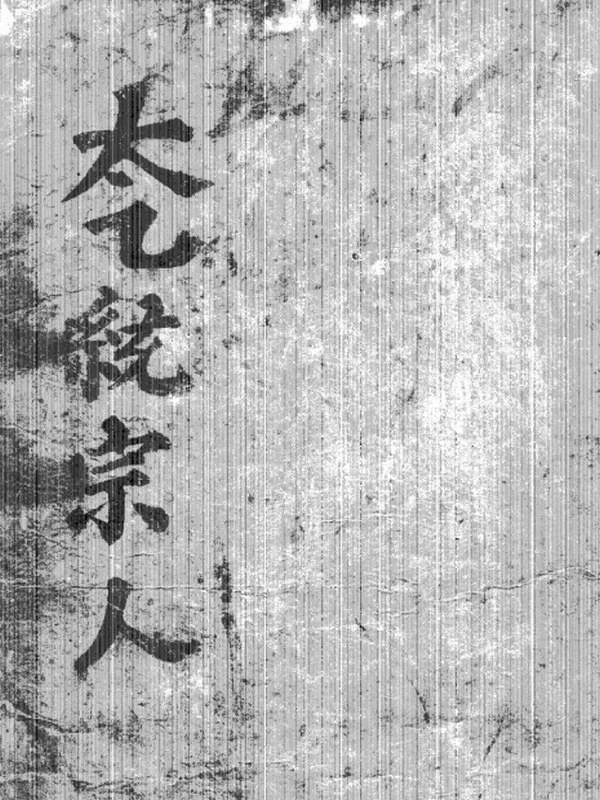 太乙統宗人